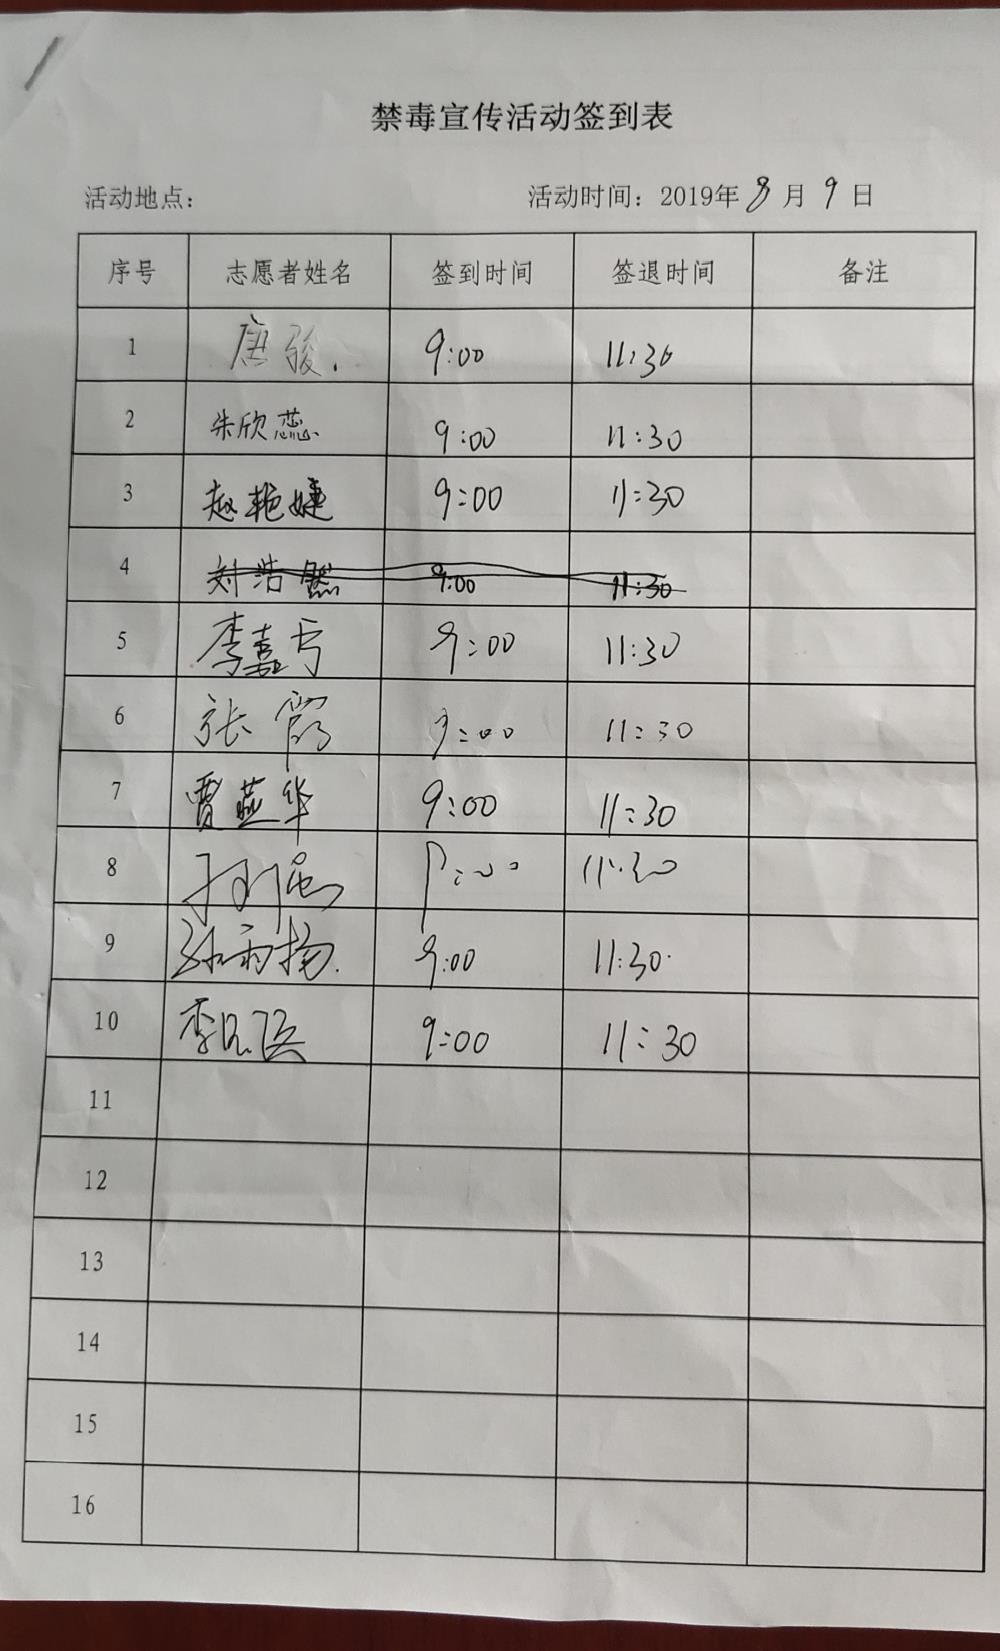 禁毒宣传活动签到表
活动地点: 活动时间: 2019年 8 月 9 日
序号 志愿者姓名 签到时间 签退时间 备注
1 唐骏. 9:00 11:30
2 朱欣蕊 9:00 11:30
3 赵艳婕 9:00 11:30
4 刘浩然 9:00 11:30
5 李嘉亏 9:00 11:30
6 张霞 9:00 11:30
7 贾燕华 9:00 11:30
8 9:00 11:30
9 孙雨扬. 9:00 11:30
10 李 9:00 11:30
11
12
13
14
15
16